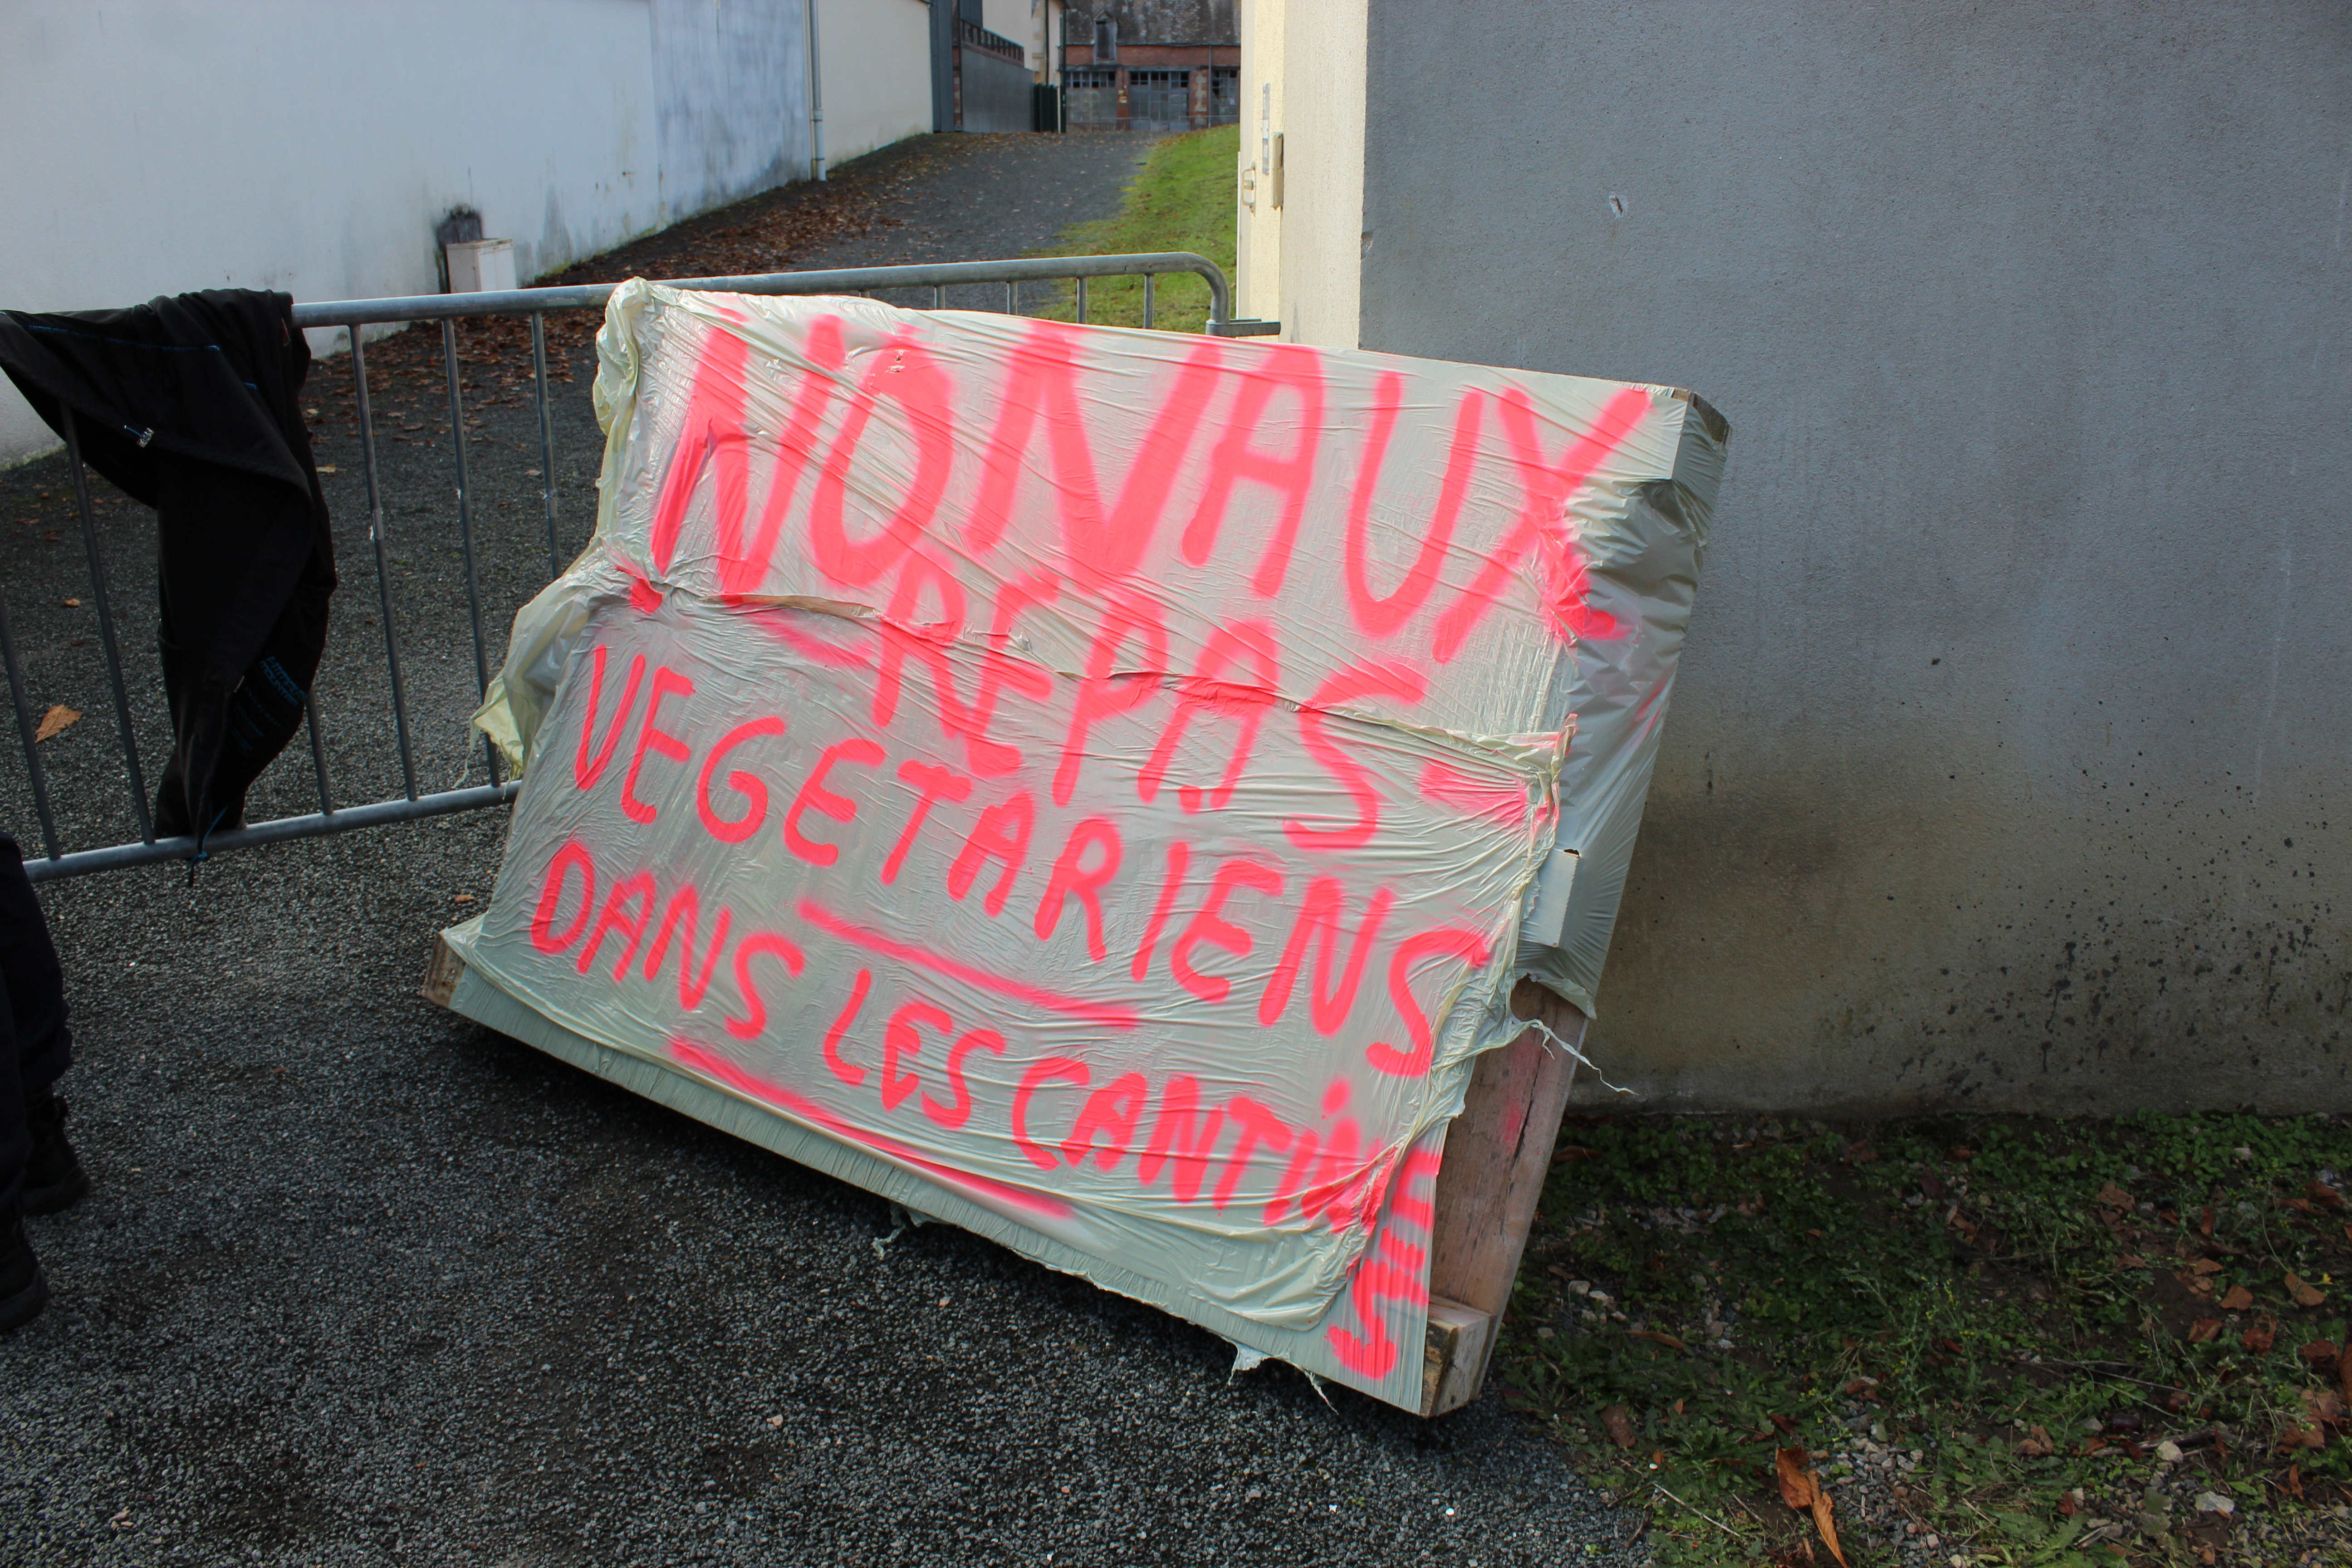 NON AUX
REPAS
VEGETARIENS
DANS LES CANTINES